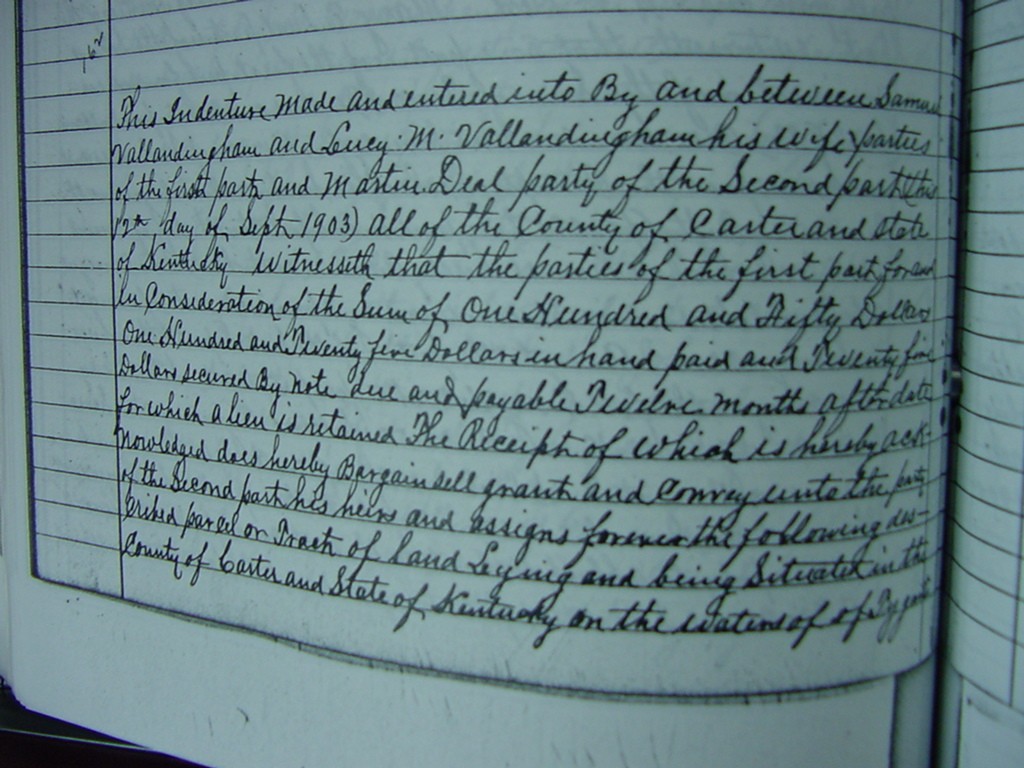 162
This Indenture Made and entered into By and between Samuel
Vallandingham and Lucy. M. Vallandingham his wife parties
of the first part and Martin Deal party of the Second part (this
12th day of Sept 1903) all of the County of Carter and state
of Kentucky Witnesseth that the parties of the first part for and
in Consideration of the Sum of One Hundred and Fifty Dollars
One Hundred and Twenty five Dollars in hand paid and Twenty five
Dollars secured By note due and payable Twelve months after date
for which a lien is retained The Receipt of which is hereby ack-
nowledged does hereby Bargain sell grant and Convey unto the party
of the Second part his heirs and assigns forever the following des-
cribed parcel or Tract of land Leying and being Situated in the
County of Carter and State of Kentucky on the waters of